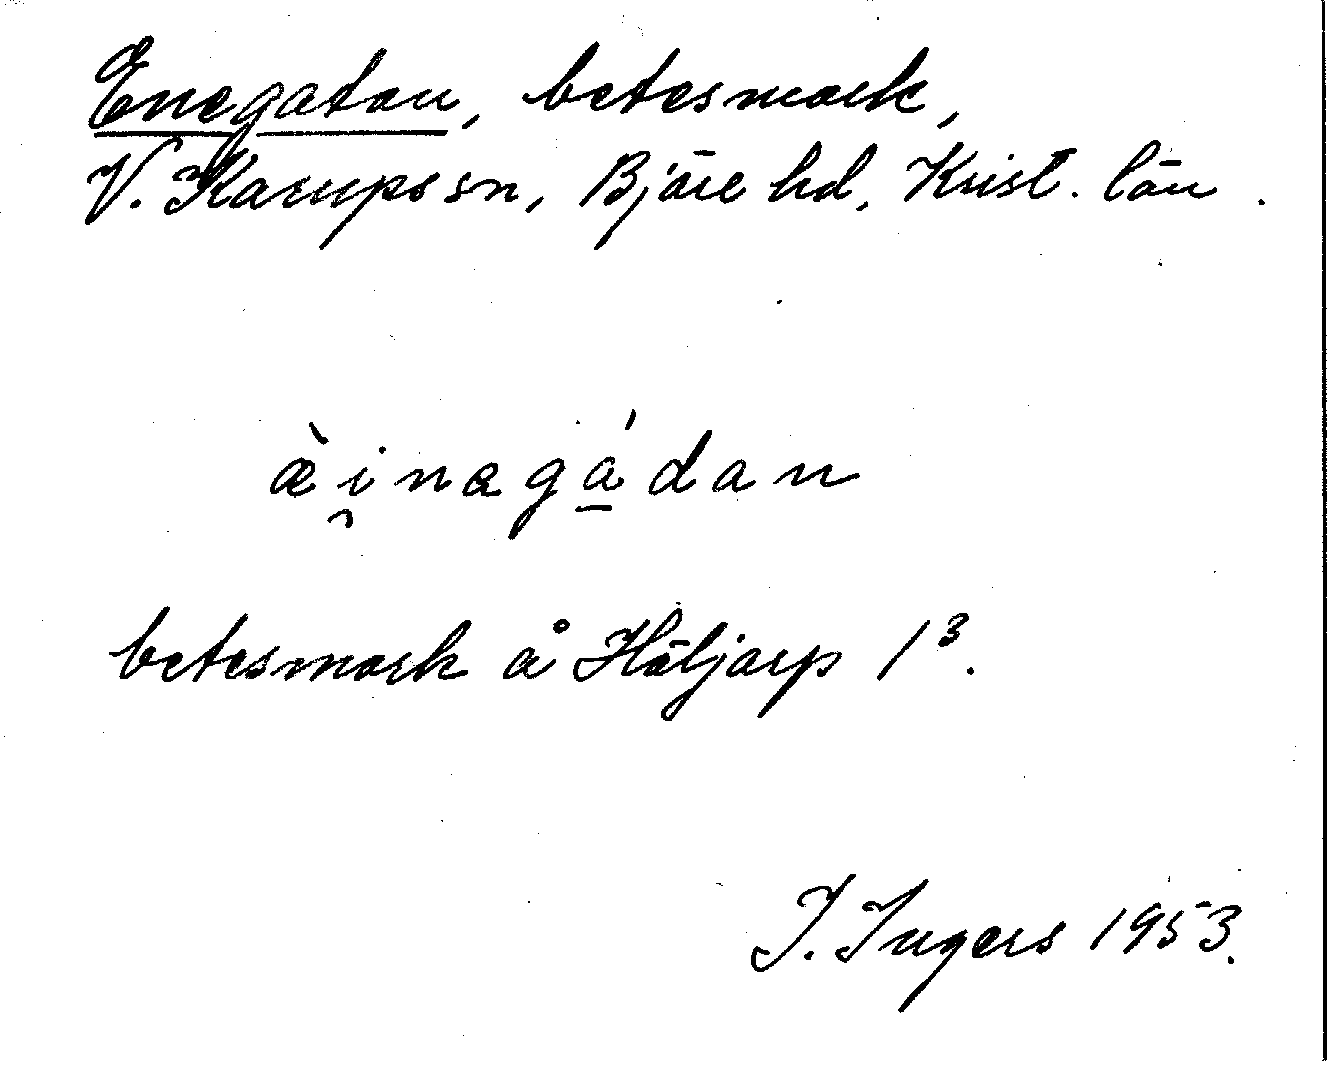 Enegatan, betesmark,
V. Karups sn, Bjäre hd, Krist. län.
æ̀i̯nagá̱dan
betesmark å Häljarp 1³.
I. Ingers 1953.